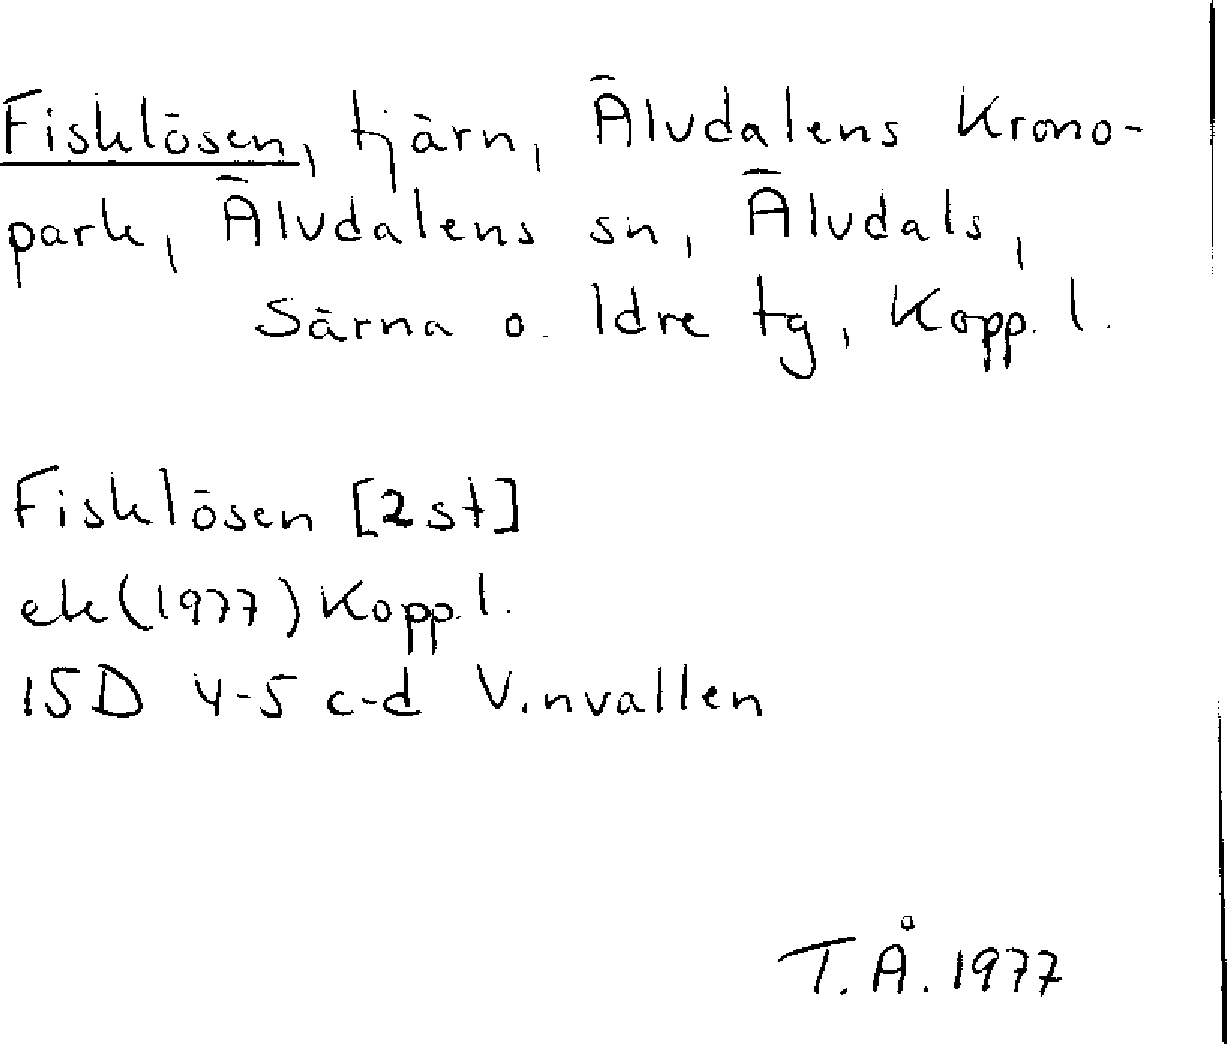 Fisklösen, tjärn, Älvdalens Krono-
park, Älvdalens sn, Älvdals,
Särna o. Idre tg, Kopp. l.
Fisklösen [2 st]
ek (1977) Kopp. l.
15D 4-5 c-d V.nvallen
T.Å. 1977